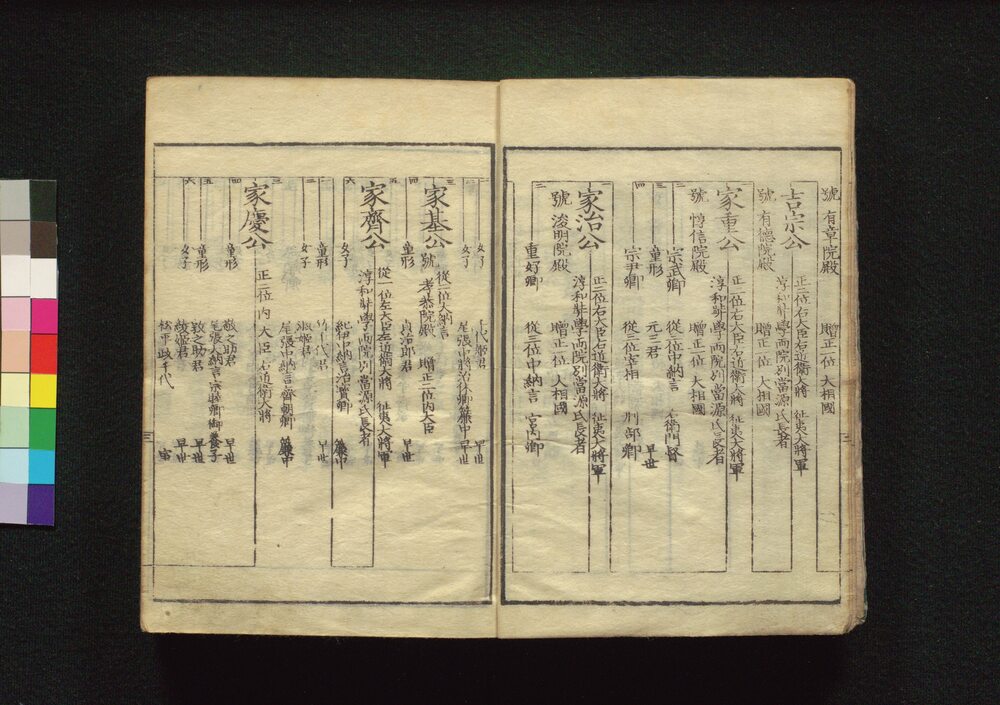 號 有章院殿 贈正一位 大相國
吉宗公 正二位右大臣右近衛大將 征夷大將軍
淳和奬學兩院別當源氏長者
號 有德院殿 贈正一位 大相國
家重公 正二位右大臣右近衛大將 征夷大將軍
淳和奬學兩院別當源氏長者
號 惇信院殿 贈正一位 大相國
二 宗武卿 從三位中納言 右衛門督
三 童形 元三君 早世
四 宗尹卿 從三位宰相 刑部卿
家治公 正二位右大臣右近衛大將 征夷大將軍
淳和奬學兩院別當源氏長者
號 浚明院殿 贈正一位 大相國
二 重好卿 從三位中納言 宮內卿
一 女子 早世
二 女子 尾張中將治休卿簾中 早世
三 家基公 從二位大納言
號 孝恭院殿 贈正二位內大臣
四 童形 貞次郎君 早世
家齊公 從一位左大臣左近衛大將 征夷大將軍
淳和奬學兩院別當源氏長者
六 女子 紀伊中納言治寶卿 簾中
二 童形 竹千代君 早世
一 女子 淑姬君
尾張中納言齊朝卿 簾中
家慶公 正二位內大臣 右近衛大將
四 童形 敬之助君 早世
尾張大納言宗睦卿御養子
五 童形 敦之助君 早世
女子 綾姬君 早世
六 松平政千代 室
三
三